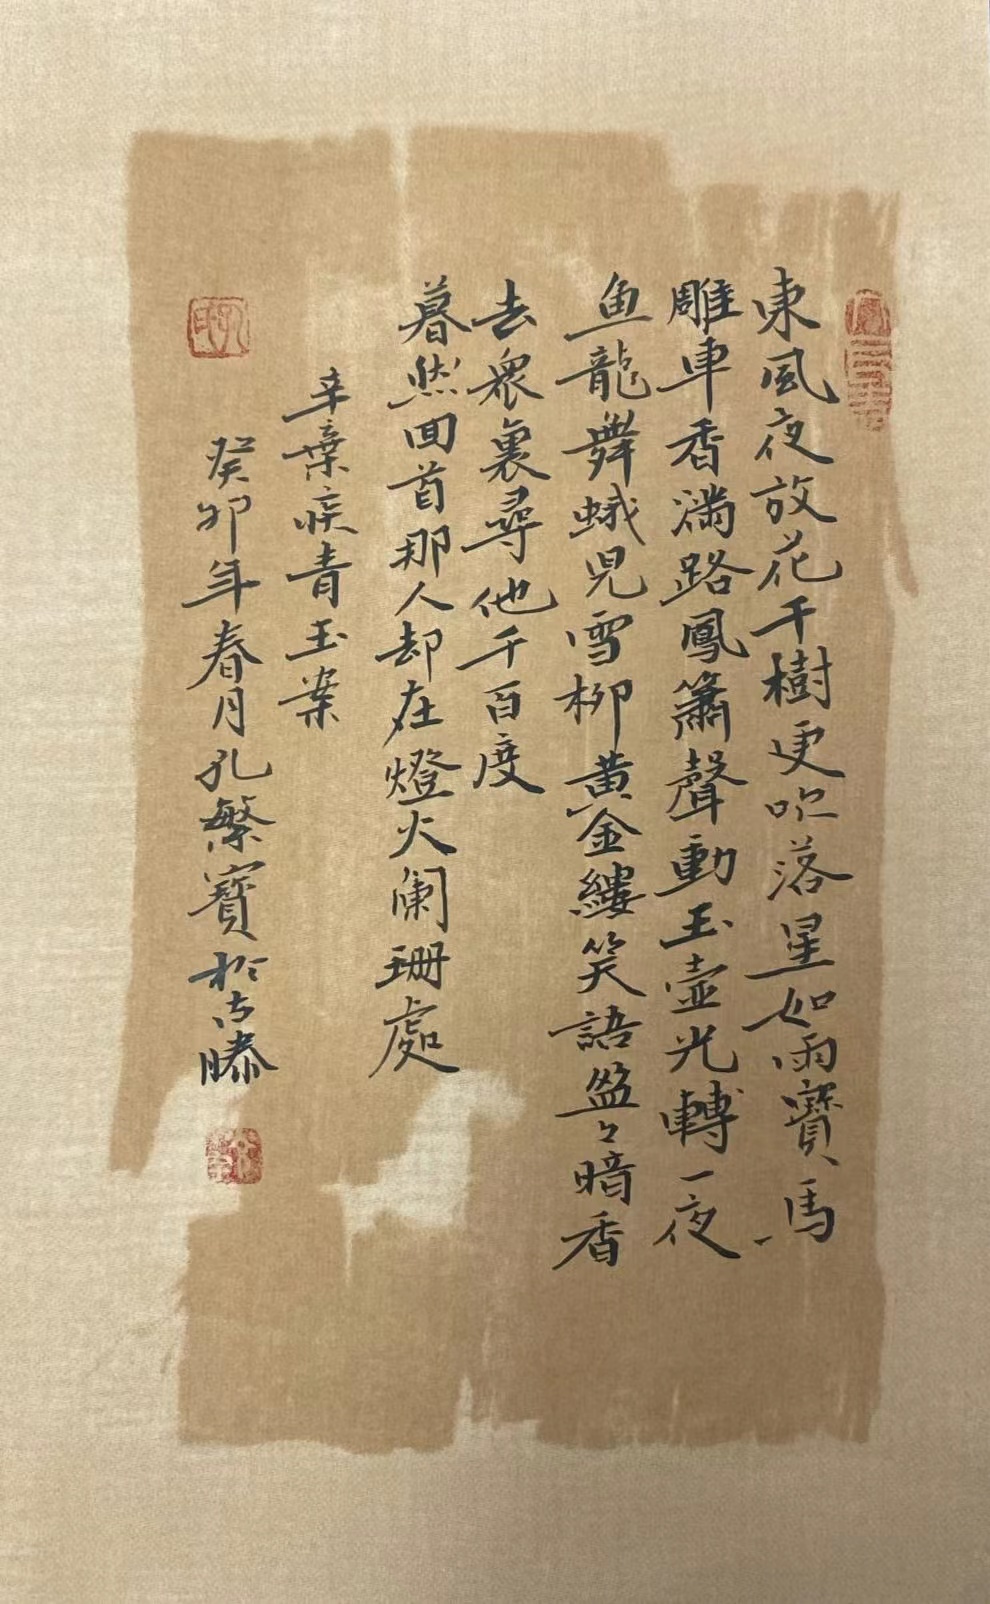 東風夜放花千樹更吹落星如雨寶馬
雕車香滿路鳳簫聲動玉壺光轉一夜
鱼龍舞蛾兒雪柳黄金縷笑語盈々暗香
去衆裏尋他千百度
暮然回首那人却在燈火阑珊處
辛棄疾青玉案
癸卯年春月孔繁寶於古滕